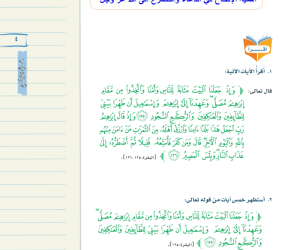 اقرأ
١. أقرأ الآيات الآتية:
قال تعالى: ﴿ وَإِذْ جَعَلْنَا ٱلْبَيْتَ مَثَابَةً لِّلنَّاسِ وَأَمْنًا وَٱتَّخِذُوا۟ مِن مَّقَامِ
إِبْرَٰهِـۧمَ مُصَلًّى ۖ وَعَهِدْنَآ إِلَىٰٓ إِبْرَٰهِـۧمَ وَإِسْمَٰعِيلَ أَن طَهِّرَا بَيْتِىَ
لِلطَّآئِفِينَ وَٱلْعَٰكِفِينَ وَٱلرُّكَّعِ ٱلسُّجُودِ ﴿١٢٥﴾ وَإِذْ قَالَ إِبْرَٰهِـۧمُ
رَبِّ ٱجْعَلْ هَٰذَا بَلَدًا ءَامِنًا وَٱرْزُقْ أَهْلَهُۥ مِنَ ٱلثَّمَرَٰتِ مَنْ ءَامَنَ مِنْهُم
بِٱللَّهِ وَٱلْيَوْمِ ٱلْـَٔاخِرِ ۖ قَالَ وَمَن كَفَرَ فَأُمَتِّعُهُۥ قَلِيلًا ثُمَّ أَضْطَرُّهُۥٓ إِلَىٰ
عَذَابِ ٱلنَّارِ ۖ وَبِئْسَ ٱلْمَصِيرُ ﴿١٢٦﴾ ﴾ [البقرة: ١٢٥، ١٢٦].
٢. أستظهر خمس آيات من قوله تعالى:
﴿ وَإِذْ جَعَلْنَا ٱلْبَيْتَ مَثَابَةً لِّلنَّاسِ وَأَمْنًا وَٱتَّخِذُوا۟ مِن مَّقَامِ إِبْرَٰهِـۧمَ مُصَلًّى ۖ
وَعَهِدْنَآ إِلَىٰٓ إِبْرَٰهِـۧمَ وَإِسْمَٰعِيلَ أَن طَهِّرَا بَيْتِىَ لِلطَّآئِفِينَ وَٱلْعَٰكِفِينَ
وَٱلرُّكَّعِ ٱلسُّجُودِ ﴿١٢٥﴾ ﴾ [البقرة: ١٢٥].
٤